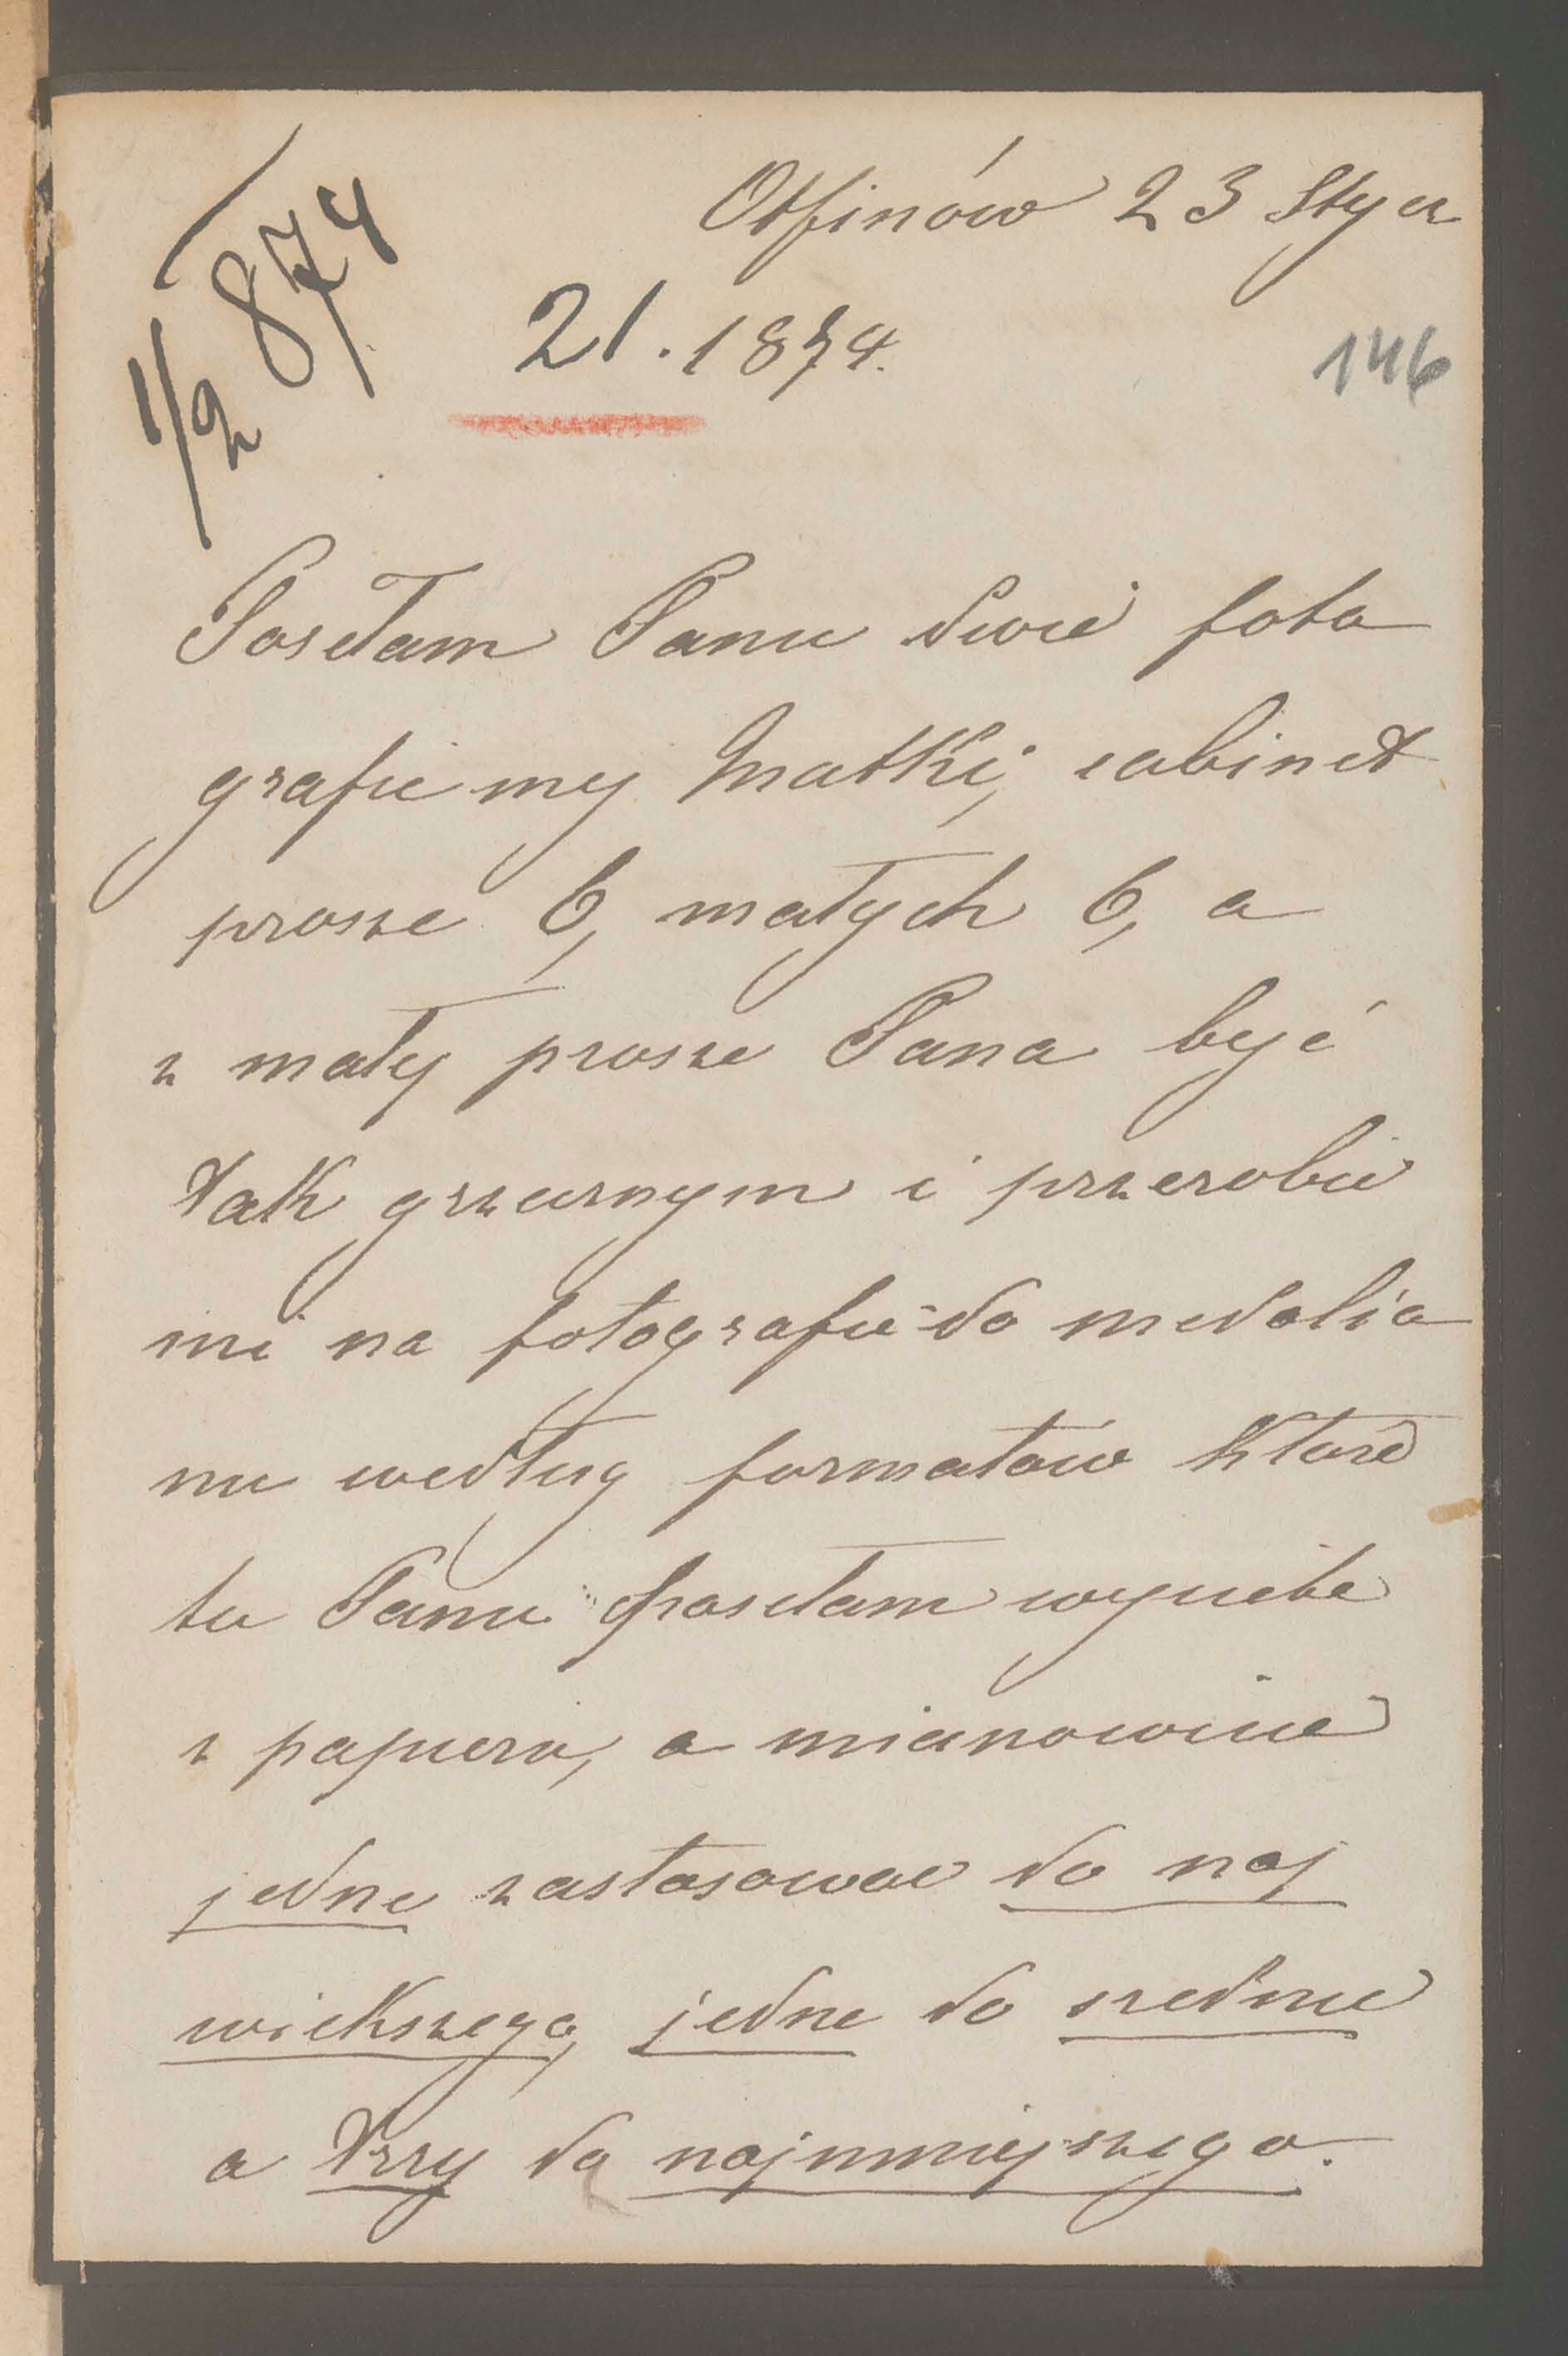 Otfinów 23 Stycz
1/2 874
21. 1874.
146
Posełam Panu dwie foto
grafie mej Matki, cabinet
prosze 6, małych 6, a
z mały prosze Pana być
tak grzecznym i przerobic
mi na fotografie do medalio
nu według formatów które
tu Panu posełam wyciete
z papieru, a mianowicie
jedne zastosowac do naj
wiekszego, jedne do srednie
a trzy do najmniejszego.